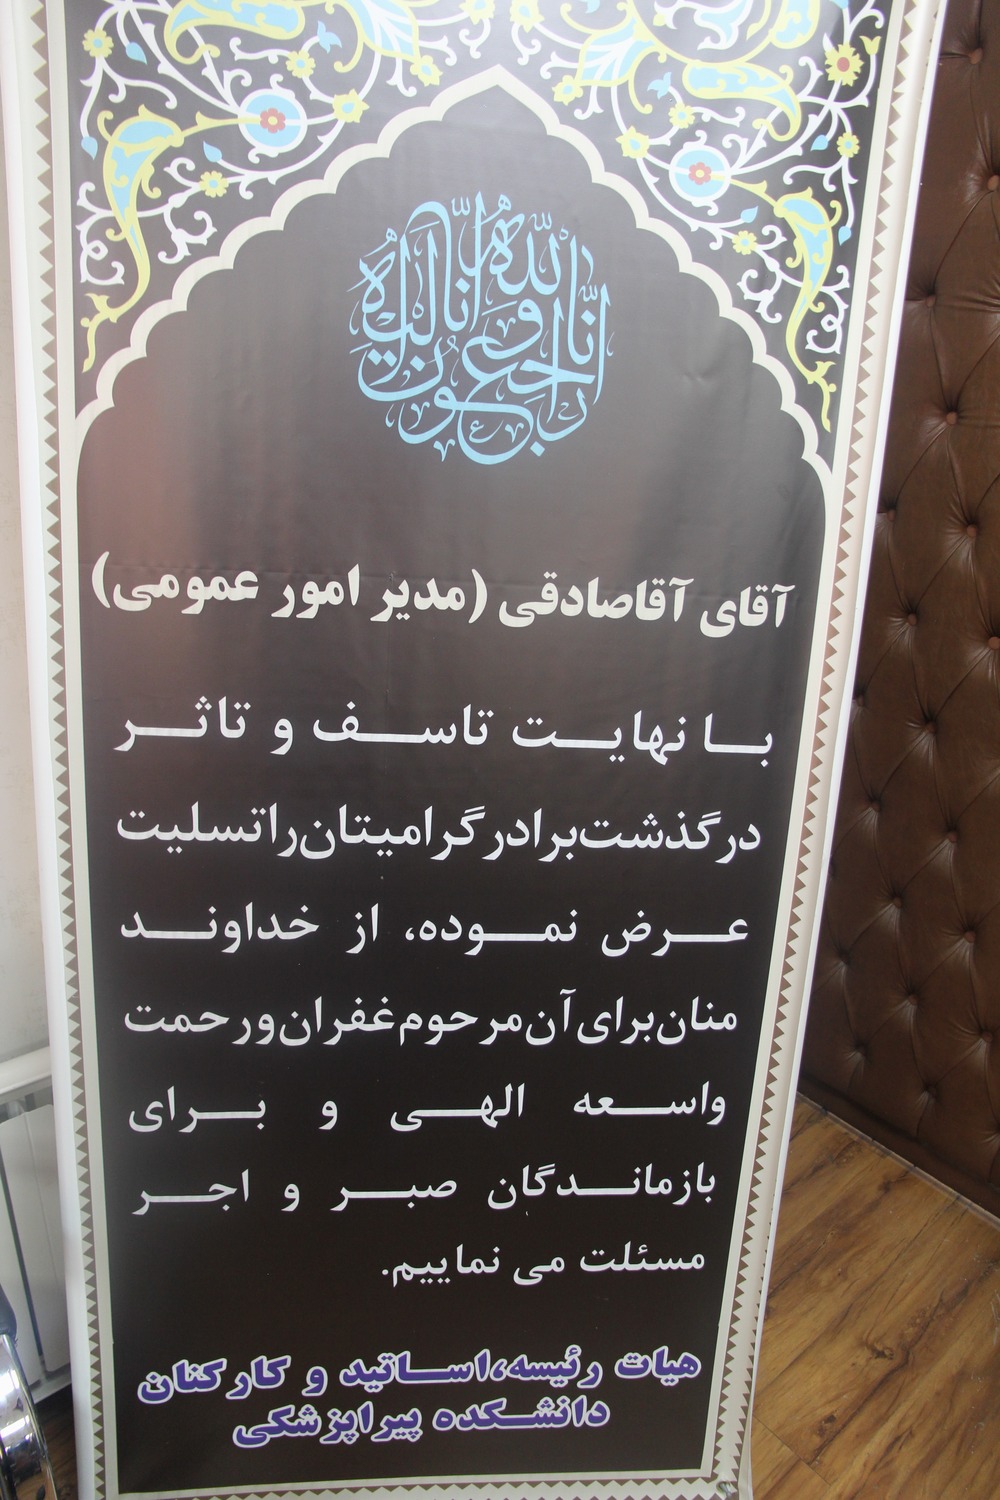 انا لله و انا الیه راجعون
آقای آقاصادقی (مدیر امور عمومی)
با نهایت تاسف و تاثر
درگذشت برادر گرامیتان را تسلیت
عرض نموده، از خداوند
منان برای آن مرحوم غفران و رحمت
واسعه الهی و برای
بازماندگان صبر و اجر
مسئلت می نماییم.
هیات رئیسه، اساتید و کارکنان
دانشکده پیراپزشکی